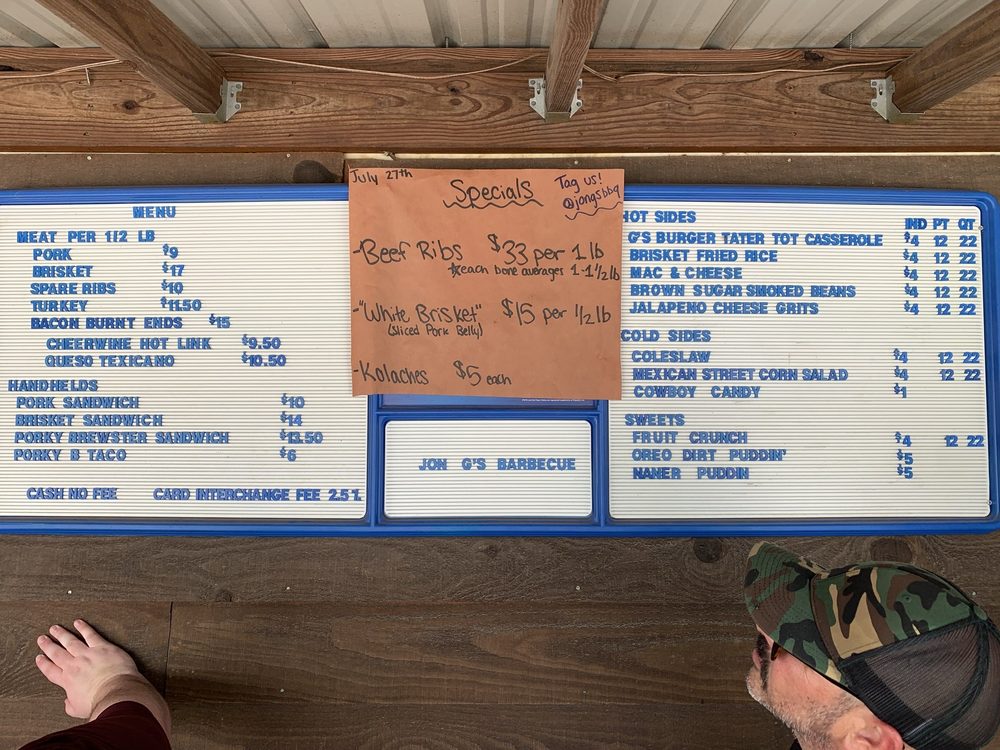 MENU
MEAT PER 1/2 LB
PORK $9
BRISKET $17
SPARE RIBS $10
TURKEY $11.50
BACON BURNT ENDS $15
CHEERWINE HOT LINK $9.50
QUESO TEXICANO $10.50
HANDHELDS
PORK SANDWICH $10
BRISKET SANDWICH $14
PORKY BREWSTER SANDWICH $13.50
PORKY B TACO $6
CASH NO FEE CARD INTERCHANGE FEE 2.5%
July 27th
Specials
Tag us!
@jongsbbq
-Beef Ribs $33 per 1 lb
*each bone averages 1-1 1/2 lb
-"White Brisket" $15 per 1/2 lb
(Sliced Pork Belly)
-Kolaches $5 each
JON G'S BARBECUE
HOT SIDES
IND PT QT
G'S BURGER TATER TOT CASSEROLE $4 12 22
BRISKET FRIED RICE $4 12 22
MAC & CHEESE $4 12 22
BROWN SUGAR SMOKED BEANS $4 12 22
JALAPENO CHEESE GRITS $4 12 22
COLD SIDES
COLESLAW $4 12 22
MEXICAN STREET CORN SALAD $4 12 22
COWBOY CANDY $1
SWEETS
FRUIT CRUNCH $4 12 22
OREO DIRT PUDDIN' $5
NANER PUDDIN $5